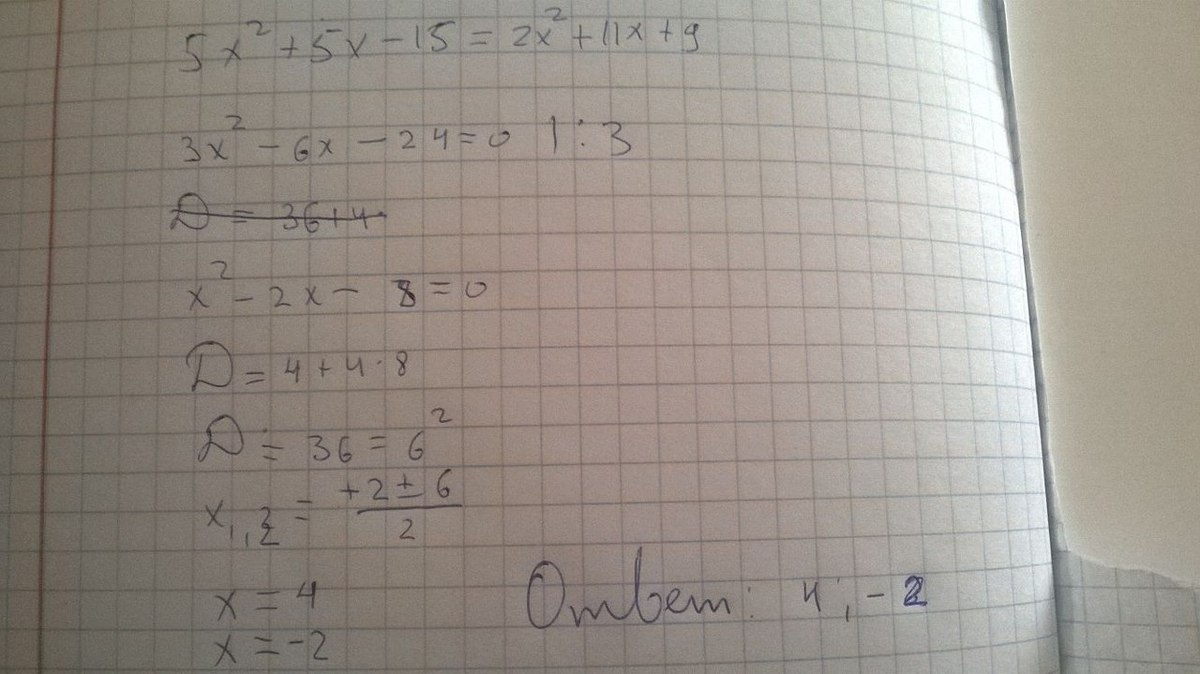 5x² + 5x - 15 = 2x² + 11x + 9
3x² - 6x - 24 = 0 | : 3
D = 36 + 4·
x² - 2x - 8 = 0
D = 4 + 4·8
D = 36 = 6²
x₁,₂ = (+2 ± 6)/2
x = 4
x = -2
Ответ: 4; -2